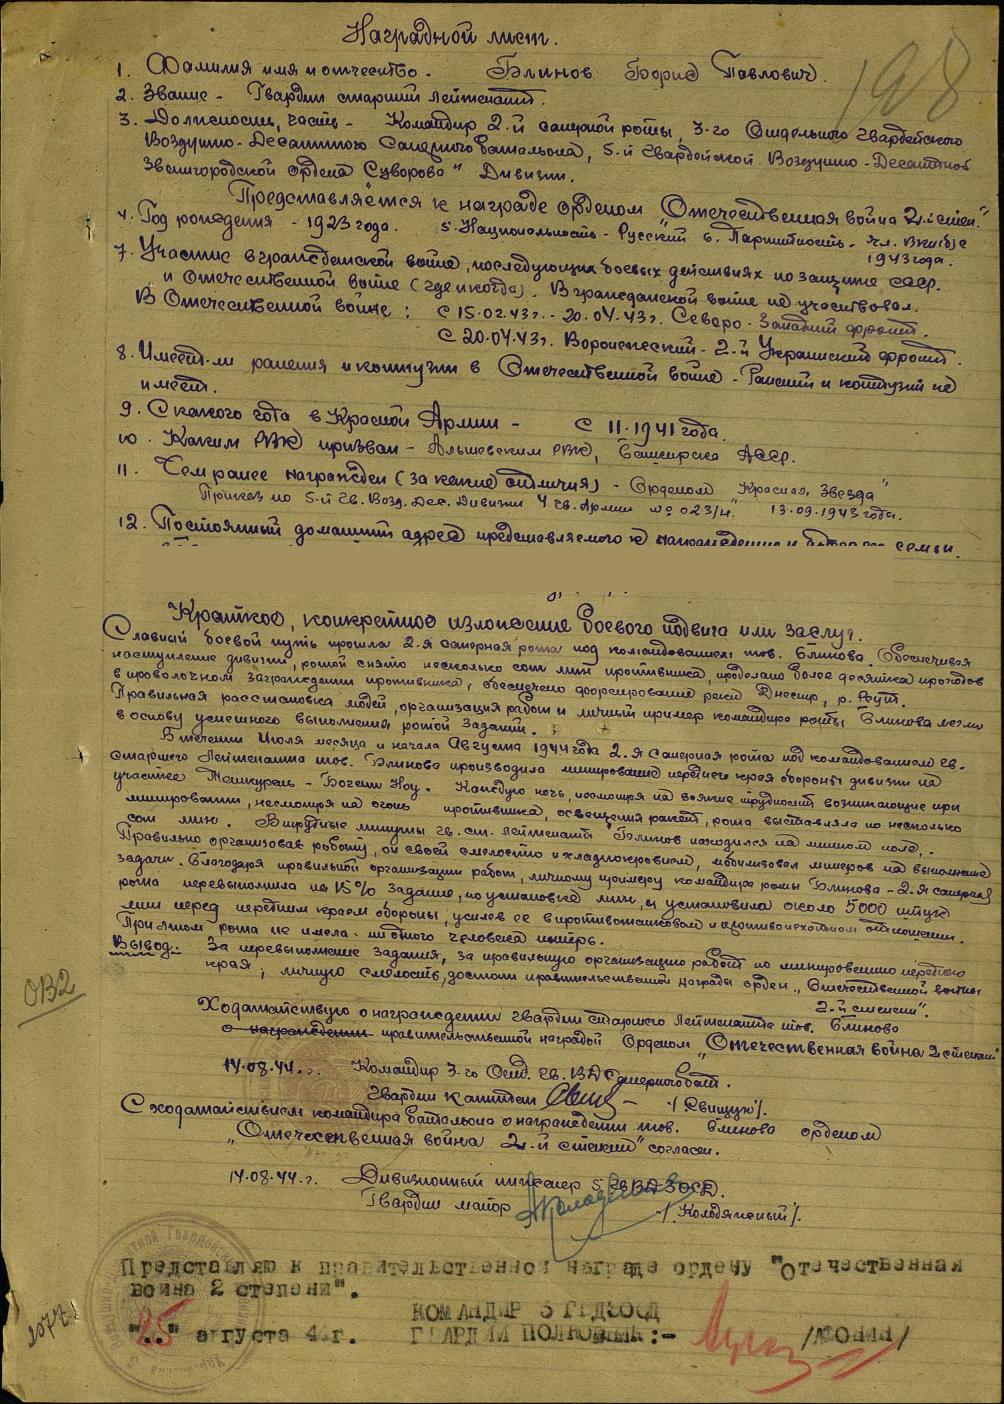 198
Наградной лист.
1. Фамилия имя и отчество - Блинов Борис Павлович.
2. Звание - Гвардии старший лейтенант.
3. Должность, часть - Командир 2-й саперной роты, 3-го Отдельного Гвардейского
Воздушно-Десантного Саперного батальона, 5-й Гвардейской Воздушно-Десантной
Звенигородской ордена Суворова" Дивизии.
Представляется к награде орденом "Отечественная война 2-й степ."
4. Год рождения - 1923 года. 5. Национальность - Русский 6. Партийность - чл. ВКП(б) с
1943 года.
7. Участие в гражданской войне, последующих боевых действиях по защите СССР.
и Отечественной войне (где и когда). В гражданской войне не участвовал.
В Отечественной войне: С 15.02.43г. - 20.04.43г. Северо-Западный фронт.
С 20.04.43г. Воронежский - 2-й Украинский фронт.
8. Имеет-ли ранения и контузии в Отечественной войне - Ранений и контузий не
имеет.
9. С какого года в Красной Армии - С 11.1941 года.
10. Каким РВК призван - Альшевским РВК, Башкирск АССР.
11. Чем ранее награжден (за какие отличия) - Орденом "Красная Звезда"
Приказ по 5-й Гв. Возд. Дес. Дивизии 4 Гв. Армии № 023/н. 13.09.1943 года.
12. Постоянный домашний адрес представляемого к награждению и семьи.
Краткое, конкретное изложение боевого подвига или заслуг.
Славный боевой путь прошла 2-я саперная рота под командованием тов. Блинова. Обеспечивая
наступление дивизии, ротой снято несколько сот мин противника, проделано более десятка проходов
в проволочном заграждении противника, обеспечено форсирование реки Днестр, р. Реут.
Правильная расстановка людей, организация работ и личный пример командира роты Блинова легли
в основу успешного выполнения ротой заданий.
В течении Июля месяца и начала Августа 1944 года 2-я саперная рота под командованием гв.
старшего Лейтенанта тов. Блинова производила минирование переднего края обороны дивизии на
участке - Богени Ноу. Каждую ночь, несмотря на всякие трудности возникающие при
минировании, несмотря на огонь противника, освещения ракет, рота выставляла по несколько
сот мин. В трудные минуты гв. ст. лейтенант Блинов находился на минном поле.
Правильно организовав работу, он своей смелостью и хладнокровием, мобилизовал минеров на выполнение
задачи. Благодаря правильной организации работ, личному примеру командира роты Блинова - 2-я саперная
рота перевыполнила на 15% задание, по установке мин, и установила около 5000 штук
мин перед передним краем обороны, усилев ее в противотанковом и противопехотном отношении.
При этом рота не имела ни одного человека потерь.
Вывод. За перевыполнение задания, за правильную организацию работ по минированию переднего
края, личную смелость, достоин правительственной награды орден "Отечественной войны
2-й степени".
Ходатайствую о награждении гвардии старшего Лейтенанта тов. Блинова
о награждении правительственной наградой Орденом "Отечественная война 2 степени"
14.08.44.г. Командир 3-го Отд. Гв. ВД Саперного бат.
Гвардии капитан /Свищук/.
С ходатайством командира батальона о награждении тов. Блинова орденом
"Отечественная война 2-й степени" согласен.
14.08.44.г. Дивизионный инженер 5 Гв ВД ЗОСД.
Гвардии майор /Колодяжный/.
Представляю к правительственной награде ордену "Отечественная
война 2 степени".
КОМАНДИР 5 ГВДЗОСД
"25" августа 44г. ГВАРДИИ ПОЛКОВНИК:- /АФОНИН/
ОВ2